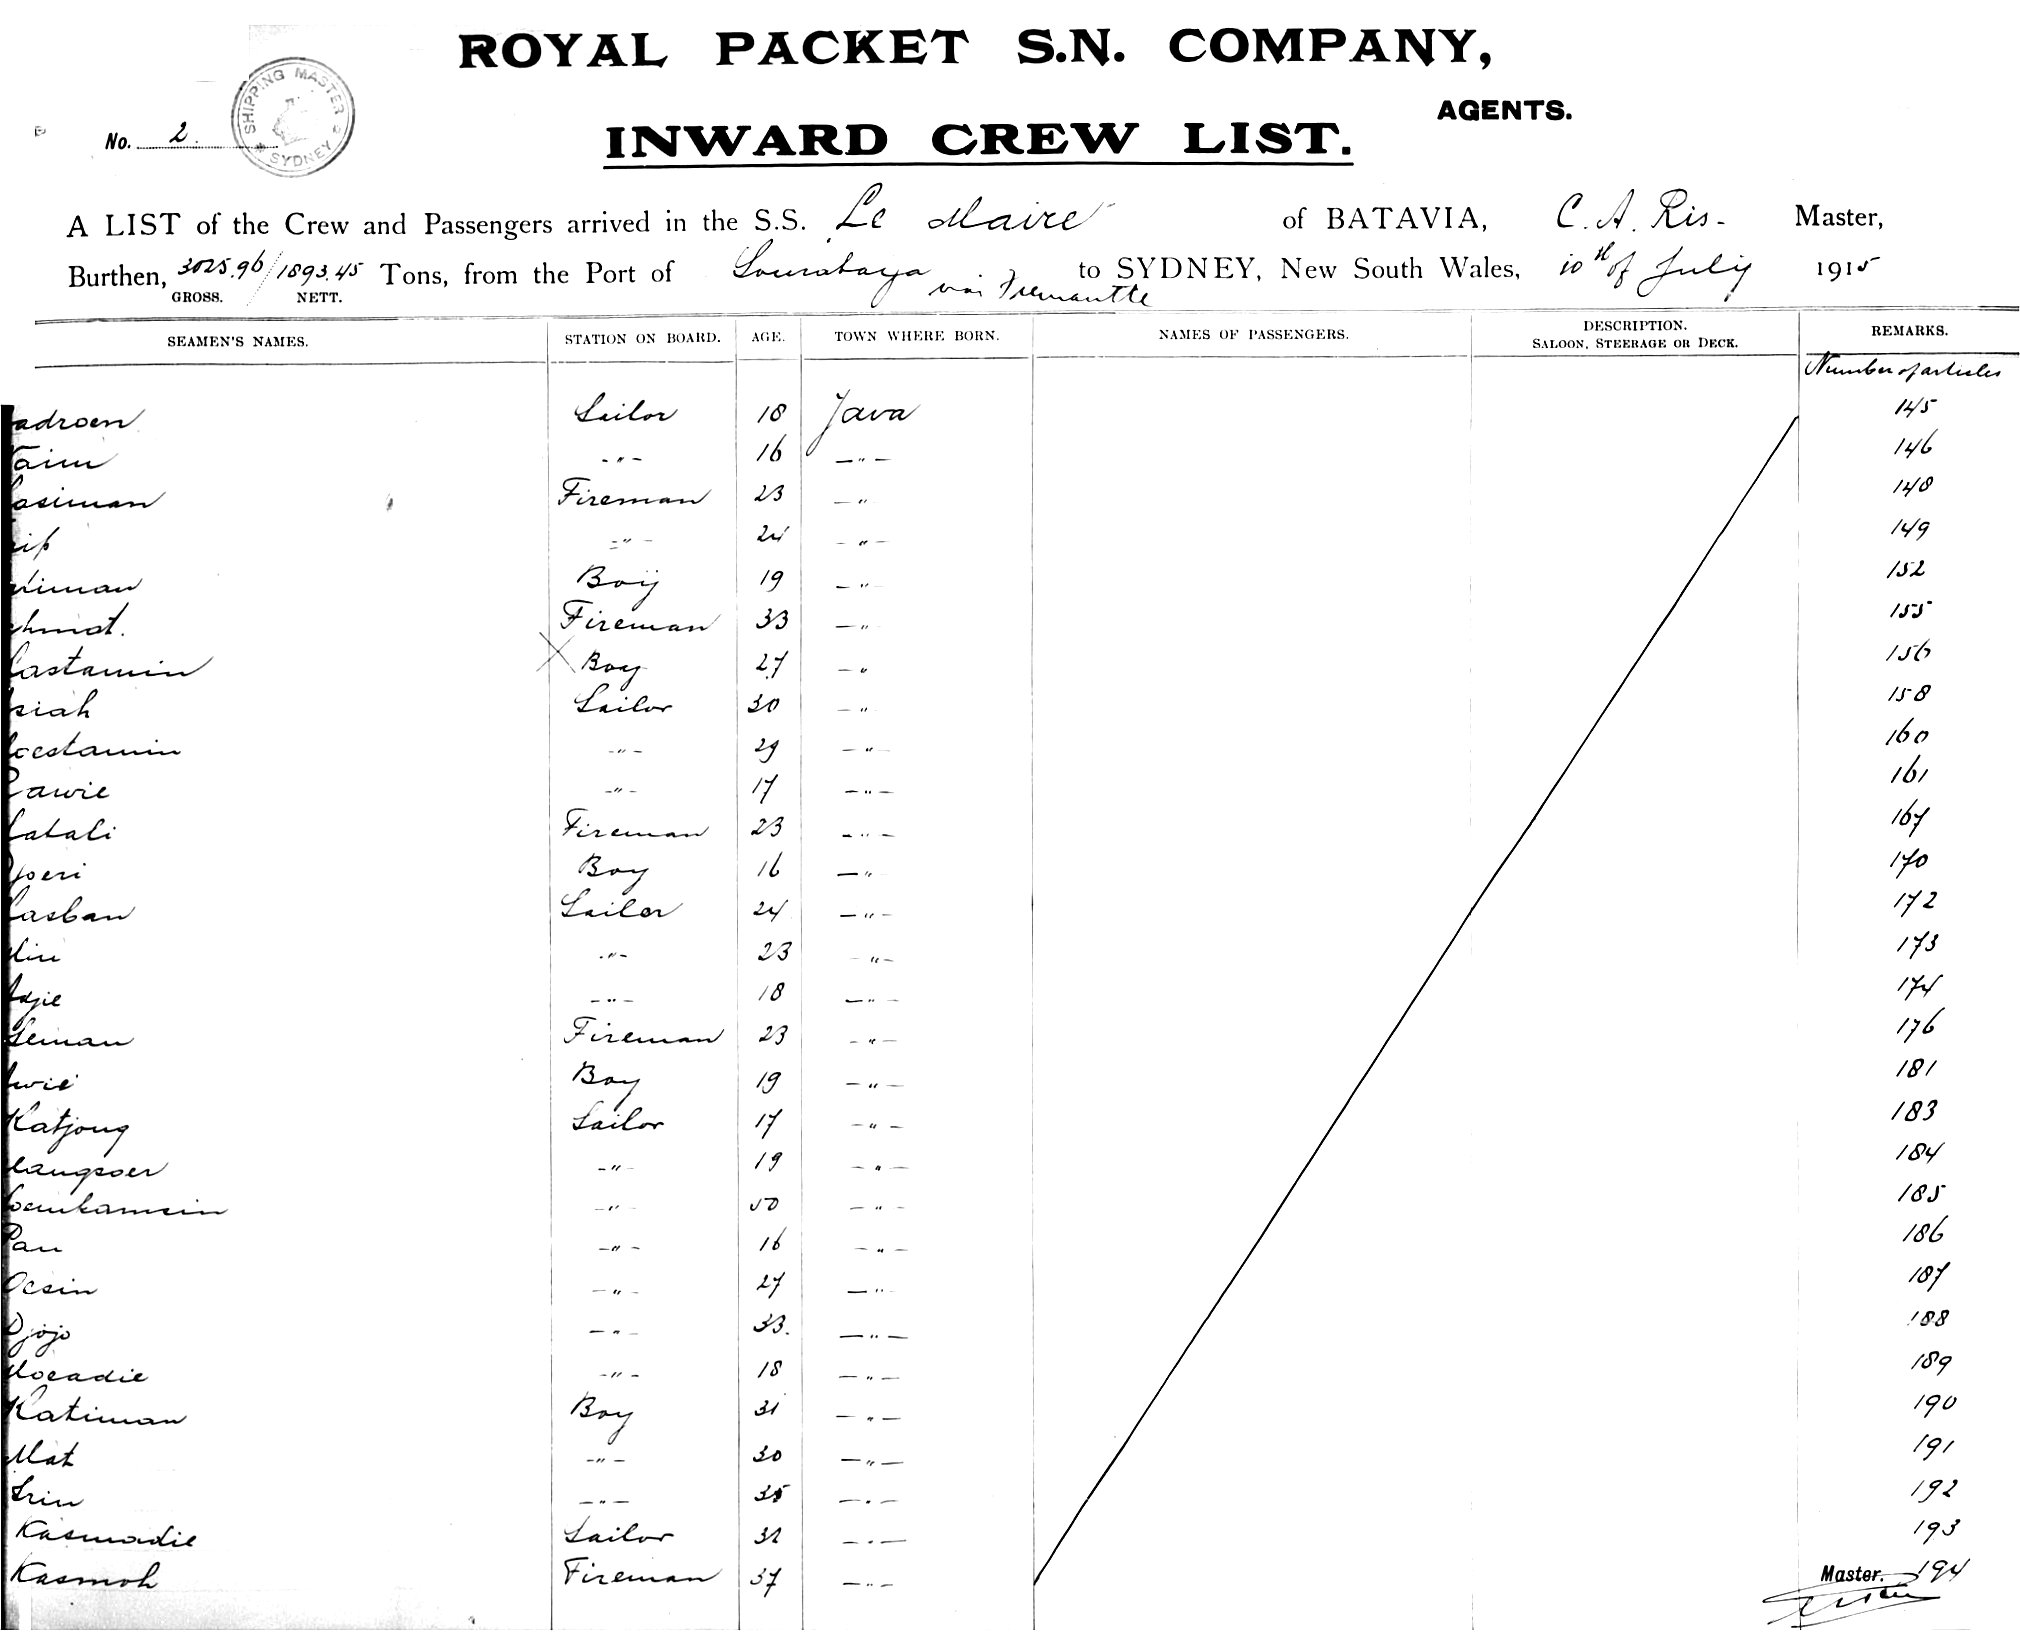 ROYAL PACKET S.N. COMPANY,
AGENTS.
No. 2.
SHIPPING MASTER SYDNEY
INWARD CREW LIST.
A LIST of the Crew and Passengers arrived in the S.S. Le Maire of BATAVIA, C. A. Ris - Master,
Burthen, 3025.96/1893.45 Tons, from the Port of Sourabaya via Fremantle to SYDNEY, New South Wales, 10th of July 1915
GROSS. NETT.
SEAMEN'S NAMES. STATION ON BOARD. AGE. TOWN WHERE BORN. NAMES OF PASSENGERS. DESCRIPTION. SALOON, STEERAGE OR DECK. REMARKS.
Number of articles
adroen Sailor 18 Java 145
Taim -"- 16 -"- 146
asiman Fireman 23 -" 148
ip -"- 24 -"- 149
iman Boy 19 -" 152
hmat. Fireman 33 -" 155
astamin Boy 27 -" 156
siah Sailor 30 -" 158
oestamin -"- 29 -"- 160
awie -"- 17 -"- 161
atali Fireman 23 -"- 167
joeri Boy 16 -" 170
asban Sailor 24 -"- 172
lin -"- 23 -"- 173
djie -"- 18 -"- 174
Seman Fireman 23 -"- 176
wie Boy 19 -"- 181
Katjong Sailor 17 -"- 183
angsoer -"- 19 -"- 184
-"- 50 -"- 185
Pan -"- 16 -"- 186
Oesin -"- 27 -" 187
Djojo -"- 33. -"- 188
oeadie -"- 18 -"- 189
Katiman Boy 31 -"- 190
Mat -"- 30 -"- 191
Srin -"- 35 -"- 192
Kasmadie Sailor 32 -"- 193
Kasmoh Fireman 37 -"- 194
Master.